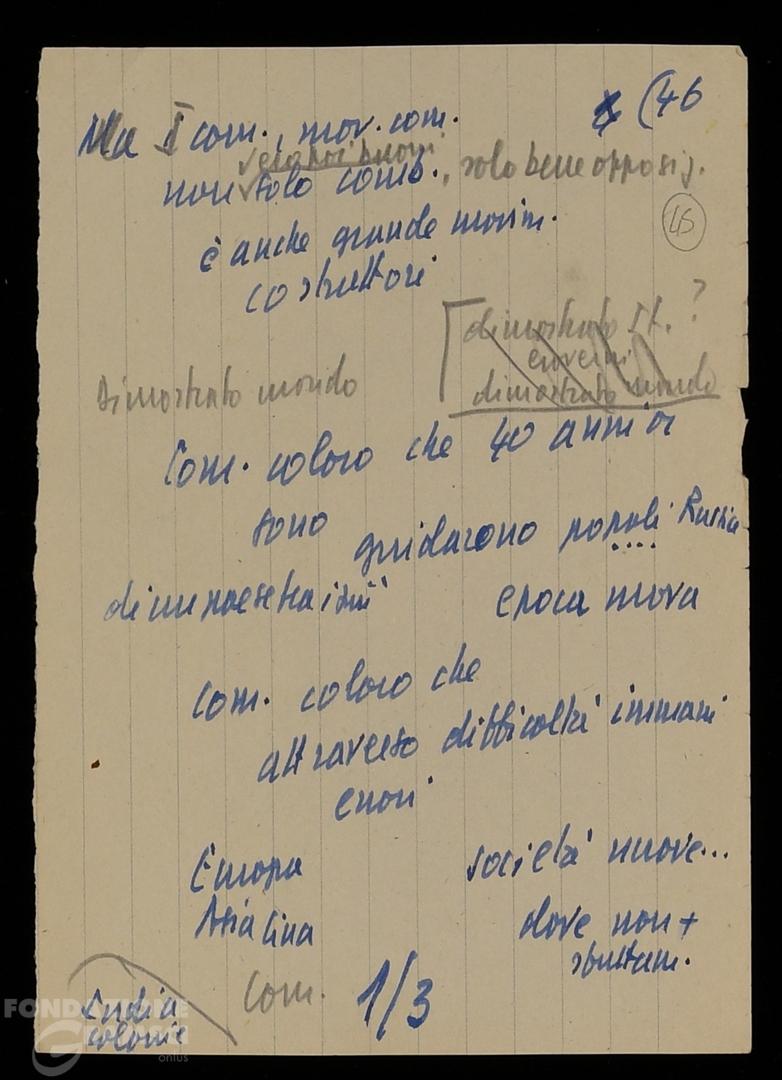 Ma I com., mov. com. (46
non solo comb., solo bene opposiz.
45
è anche grande movim.
costruttori
dimostrato It. ?
governi
dimostrato mondo
Dimostrato mondo
Com. coloro che 40 anni or
sono
guidarono popoli Russia
....
di un paese
epoca nuova
Com. coloro che
attraverso difficoltà immani
errori
Europa società nuove...
Asia Cina dove non +
sfruttam.
India Com. 1/3
colonie
FONDAZIONE
GRAMSCI
onlus